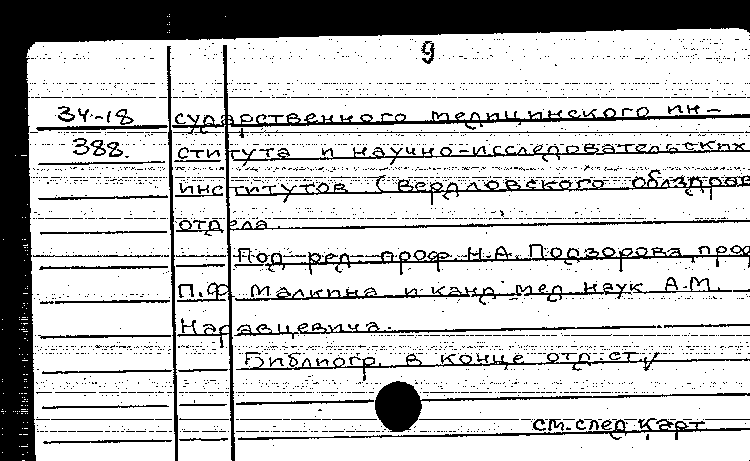 9
34-18 сударственного медицинского ин-
388. ститута и научно-исследовательских
институтов Свердловского облздрав
отдела.
Под ред. проф. Н.А. Подзорова, проф
П.Ф. Малкина и канд мед наук А.М.
Наравцевича.
Библиогр. в конце отд. ст.
см. след карт